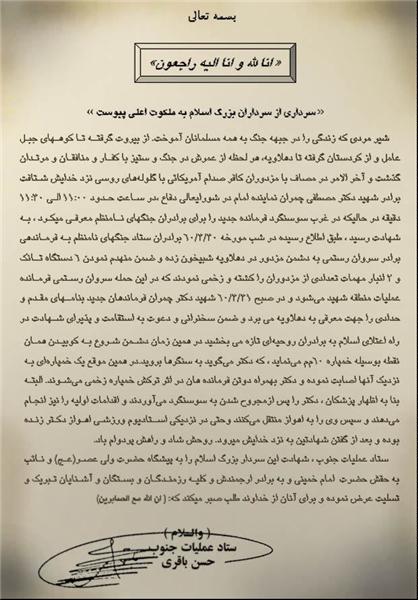 بسمه تعالی
«انا لله و انا الیه راجعون»
«سرداری از سرداران بزرگ اسلام به ملکوت اعلی پیوست»
شیر مردی که زندگی را در جبهه جنگ به همه مسلمانان آموخت. از بیروت گرفته تا کوههای جبل
عامل و از کردستان گرفته تا دهلاویه، هر لحظه از عمرش در جنگ و ستیز با کفار و منافقان و مرتدان
گذشت و آخر الامر در مصاف با مزدوران کافر صدام آمریکائی با گلوله‌های روسی نزد خدایش شتافت
برادر شهید دکتر مصطفی چمران نماینده امام در شورایعالی دفاع در ساعت حدود ۱۱:۰۰ الی ۱۱:۳۰
دقیقه در حالیکه در غرب سوسنگرد فرمانده جدید را برای برادران جنگهای نامنظم معرفی میکرد ، به
شهادت رسید ، طبق اطلاع رسیده در شب مورخه ۶۰/۳/۳۰ برادران ستاد جنگهای نامنظم به فرماندهی
برادر سروان رستمی به دشمن مزدور در دهلاویه شبیخون زده و ضمن منهدم نمودن ۶ دستگاه تانک
و ۲ انبار مهمات تعدادی از مزدوران را کشته و زخمی نمودند که در این حمله سروان رستمی فرمانده
عملیات منطقه شهید می‌شود و در صبح ۶۰/۳/۳۱ شهید دکتر چمران فرماندهان جدید بنامهای مقدم و
حدادی را جهت معرفی به دهلاویه می برد و ضمن سخنرانی و دعوت به استقامت و پذیرای شهادت در
راه اعتلای اسلام به برادران روحیه‌ای تازه می بخشید در همین زمان دشمن شروع به کوبیدن همان
نقطه بوسیله خمپاره ۶۰م‌م می‌نماید، که دکتر می‌گوید به سنگرها بروید.در همین موقع یک خمپاره‌ای به
نزدیک آنها اصابت نموده و دکتر بهمراه دوتن فرمانده هان در اثر ترکش خمپاره زخمی می‌شوند. البته
بنا به اظهار پزشکان ، دکتر را پس ازمجروح شدن به سوسنگرد می‌آوردند و اقدامات اولیه را نیز انجام
میدهند و سپس وی را به اهواز منتقل می‌کنند وحتی در نزدیکی استادیوم ورزشی اهواز دکتر زنده
بوده و بعد از گفتن شهادتین به نزد خدایش میرود. روحش شاد و راهش پردوام باد.
ستاد عملیات جنوب ، شهادت این سردار بزرگ اسلام را به پیشگاه حضرت ولی عصر(عج) و نائب
به حقش حضرت امام خمینی و به برادر ارجمندش و کلیه رزمندگان و بستگان و آشنایان تبریک و
تسلیت عرض نموده و برای آنان از خداوند طلب صبر میکند که: ( ان الله مع الصابرین)
( والسلام )
ستاد عملیات جنوب
حسن باقری